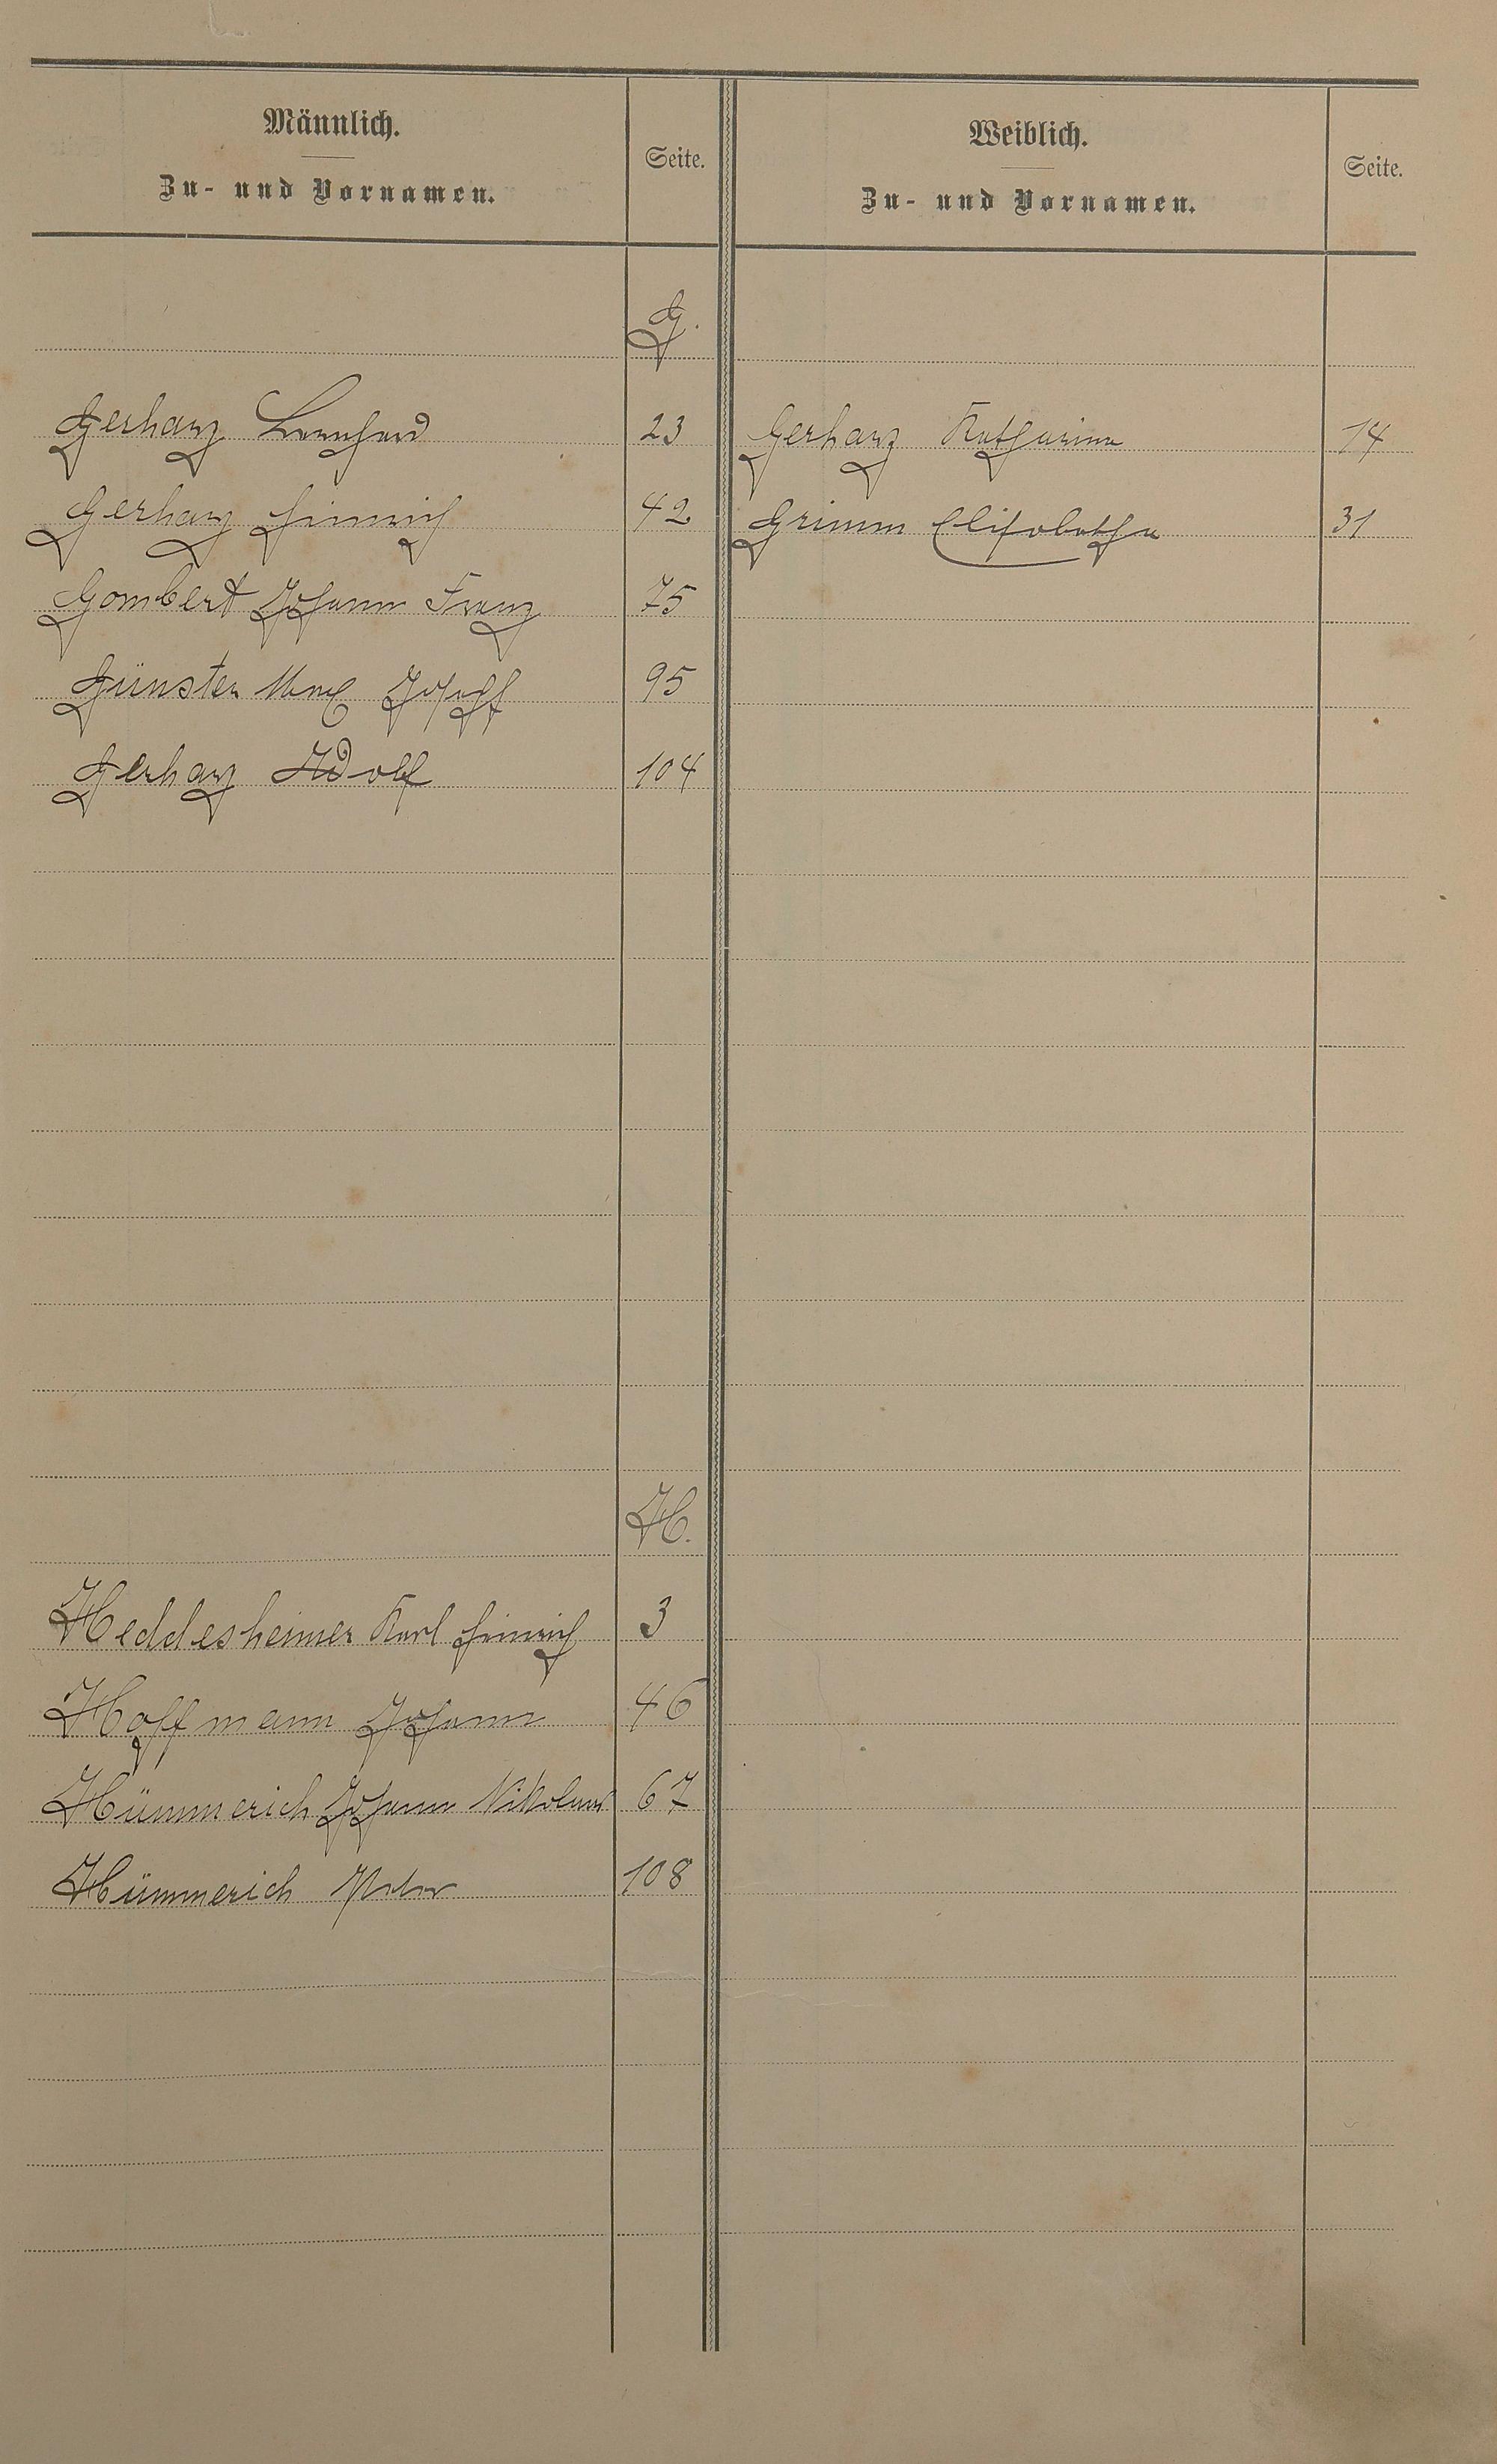 Männlich.
Zu- und Vornamen.
Seite.
Weiblich.
Zu- und Vornamen.
Seite.
G.
Gerharz Bernhard 23 Gerharz Katharina 14
Gerharz Heinrich 42 Grimm Elisabetha 31
Gombert Johann Franz 75
Günster Max Joseff 95
Gerharz Adolf 104
H.
Heddesheimer Karl Heinrich 3
Hoffmann Johann 46
Hümmerich Johann Nikolaus 67
Hümmerich Peter 108